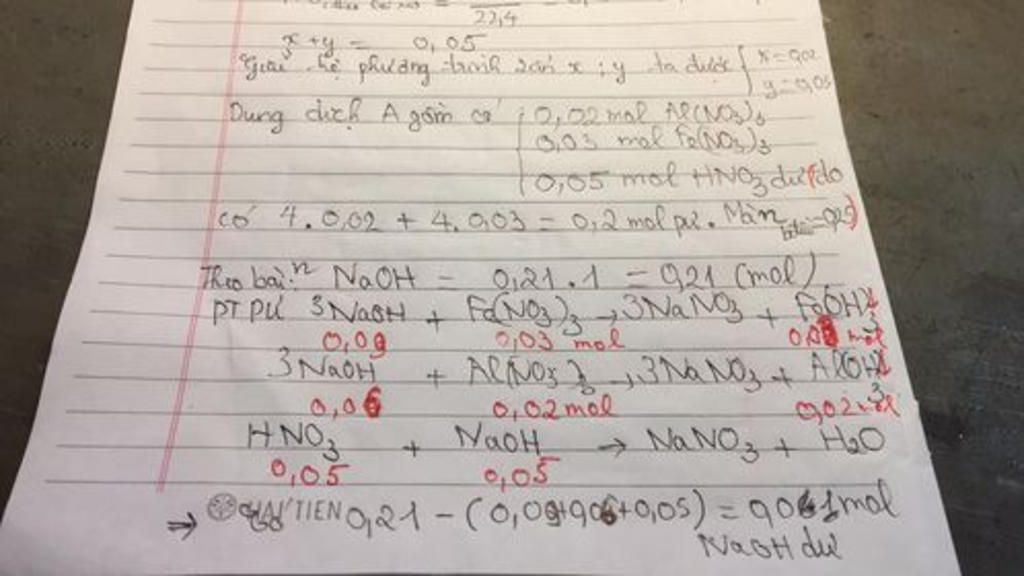 22,4
x + y = 0,05
Giải hệ phương trình trên x ; y ta được { x = 0,02
y = 0,03
Dung dịch A gồm có { 0,02 mol Al(NO3)3
0,03 mol Fe(NO3)3
0,05 mol HNO3 dư (do
có 4 . 0,02 + 4 . 0,03 = 0,2 mol pư . Mà n
Theo bài: n NaOH = 0,21 . 1 = 0,21 (mol)
PT PƯ 3NaOH + Fe(NO3)3 → 3NaNO3 + Fe(OH)3
0,09 0,03 mol 0,03 mol
3NaOH + Al(NO3)3 → 3NaNO3 + Al(OH)3
0,06 0,02 mol 0,02 mol
HNO3 + NaOH → NaNO3 + H2O
0,05 0,05
⇒ 0,21 - (0,09+0,06+0,05) = 0,01 mol
NaOH dư